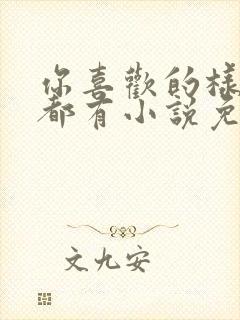 你喜歡的樣
都有小說免
文九安